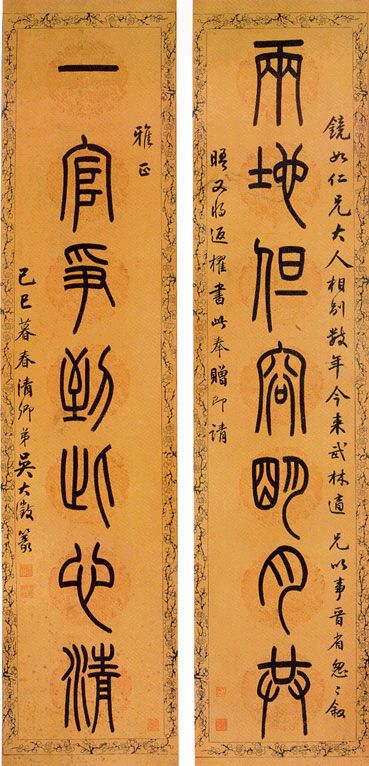 鏡如仁兄大人相別數年今來武林適 兄以事晉省怱〻敘
兩地但容明月共
晤又將返櫂書此奉贈即請
雅正
一官爭到此心清
己巳暮春清卿弟吳大澂篆